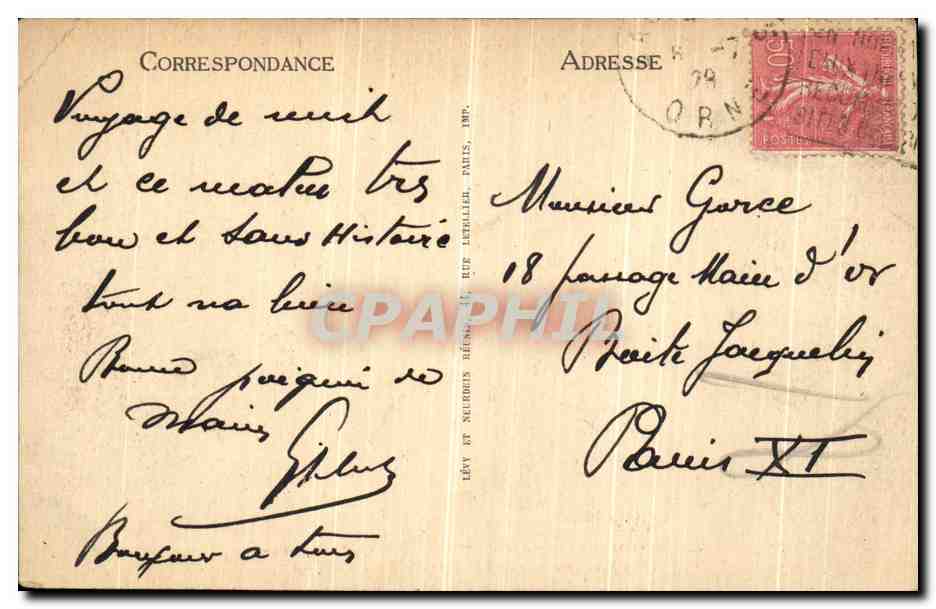 CORRESPONDANCE
Voyage de nuit
et ce matin très
bon et sans Histoire
tout va bien
Bonne poignée de
mains
Bonjour a tous
LÉVY ET NEURDEIN RÉUNIS, 44, RUE LETELLIER, PARIS, IMP.
ADRESSE
ORNE
50
POSTES
Monsieur Garce
18 passage Main d'or
Boite Jacquelin
Paris XI
CPAPHIL